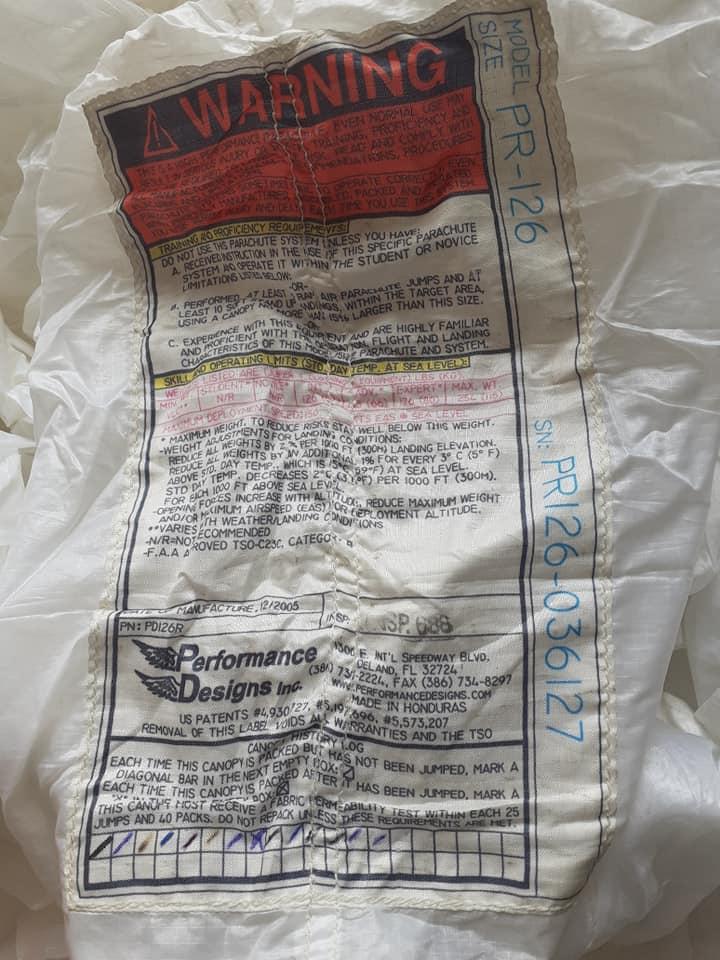 MODEL PR-126
SIZE
SN: PR126-036127
WARNING
THIS IS A HIGH PERFORMANCE PARACHUTE. EVEN NORMAL USE MAY
RESULT IN SERIOUS INJURY
TRAINING, PROFICIENCY AND
READ AND COMPLY WITH
RECOMMENDATIONS, PROCEDURES.
EVEN
MANUFACTURED, PACKED AND
TIME YOU USE THIS SYSTEM.
TRAINING AND PROFICIENCY REQUIREMENTS:
DO NOT USE THIS PARACHUTE SYSTEM UNLESS YOU HAVE:
A. RECEIVED INSTRUCTION IN THE USE OF THIS SPECIFIC PARACHUTE
SYSTEM AND OPERATE IT WITHIN THE STUDENT OR NOVICE
LIMITATIONS LISTED BELOW:
-OR-
B. PERFORMED AT LEAST RAM AIR PARACHUTE JUMPS AND AT
LEAST 10 STAND UP LANDINGS, WITHIN THE TARGET AREA,
USING A CANOPY MORE THAN 15% LARGER THAN THIS SIZE.
C. EXPERIENCE WITH THIS EQUIPMENT AND ARE HIGHLY FAMILIAR
AND PROFICIENT WITH THE OPERATION, FLIGHT AND LANDING
CHARACTERISTICS OF THIS PARACHUTE AND SYSTEM.
SKILL AND OPERATING LIMITS (STD. DAY TEMP. AT SEA LEVEL):
LISTED ARE EQUIPMENT), LBS (KG)
STUDENT* EXPERT* MAX. WT.
MIN.** N/R N/R 254 (115)
MAXIMUM DEPLOYMENT SPEED: KTS EAS @ SEA LEVEL
* MAXIMUM WEIGHT. TO REDUCE RISKS STAY WELL BELOW THIS WEIGHT.
-WEIGHT ADJUSTMENTS FOR LANDING CONDITIONS:
REDUCE ALL WEIGHTS BY % PER 1000 FT (300M) LANDING ELEVATION.
REDUCE ALL WEIGHTS BY AN ADDITIONAL 1% FOR EVERY 3° C (5° F)
ABOVE STD. DAY TEMP., WHICH IS 15°C (59°F) AT SEA LEVEL.
STD DAY TEMP. DECREASES 2°C (3 °F) PER 1000 FT (300M).
FOR EACH 1000 FT ABOVE SEA LEVEL.
-OPENING FORCES INCREASE WITH ALTITUDE, REDUCE MAXIMUM WEIGHT
AND/OR MAXIMUM AIRSPEED (EAS) OR DEPLOYMENT ALTITUDE.
**VARIES WITH WEATHER/LANDING CONDITIONS
-N/R=NOT RECOMMENDED
-F.A.A APPROVED TSO-C23C, CATEGORY B
DATE OF MANUFACTURE, 12/2005
INSP. INSP. 688
PN: PD126R
Performance
Designs Inc.
1300 E. INT'L SPEEDWAY BLVD.
DELAND, FL 32724
(386) 738-2224, FAX (386) 734-8297
WWW.PERFORMANCEDESIGNS.COM
MADE IN HONDURAS
US PATENTS #4,930,727, #5,197,696, #5,573,207
REMOVAL OF THIS LABEL VOIDS ALL WARRANTIES AND THE TSO
CANOPY HISTORY LOG
EACH TIME THIS CANOPY IS PACKED BUT HAS NOT BEEN JUMPED, MARK A
DIAGONAL BAR IN THE NEXT EMPTY BOX:
EACH TIME THIS CANOPY IS PACKED AFTER IT HAS BEEN JUMPED, MARK A
"X" BOX:
THIS CANOPY MUST RECEIVE A FABRIC PERMEABILITY TEST WITHIN EACH 25
JUMPS AND 40 PACKS. DO NOT REPACK UNLESS THESE REQUIREMENTS ARE MET.